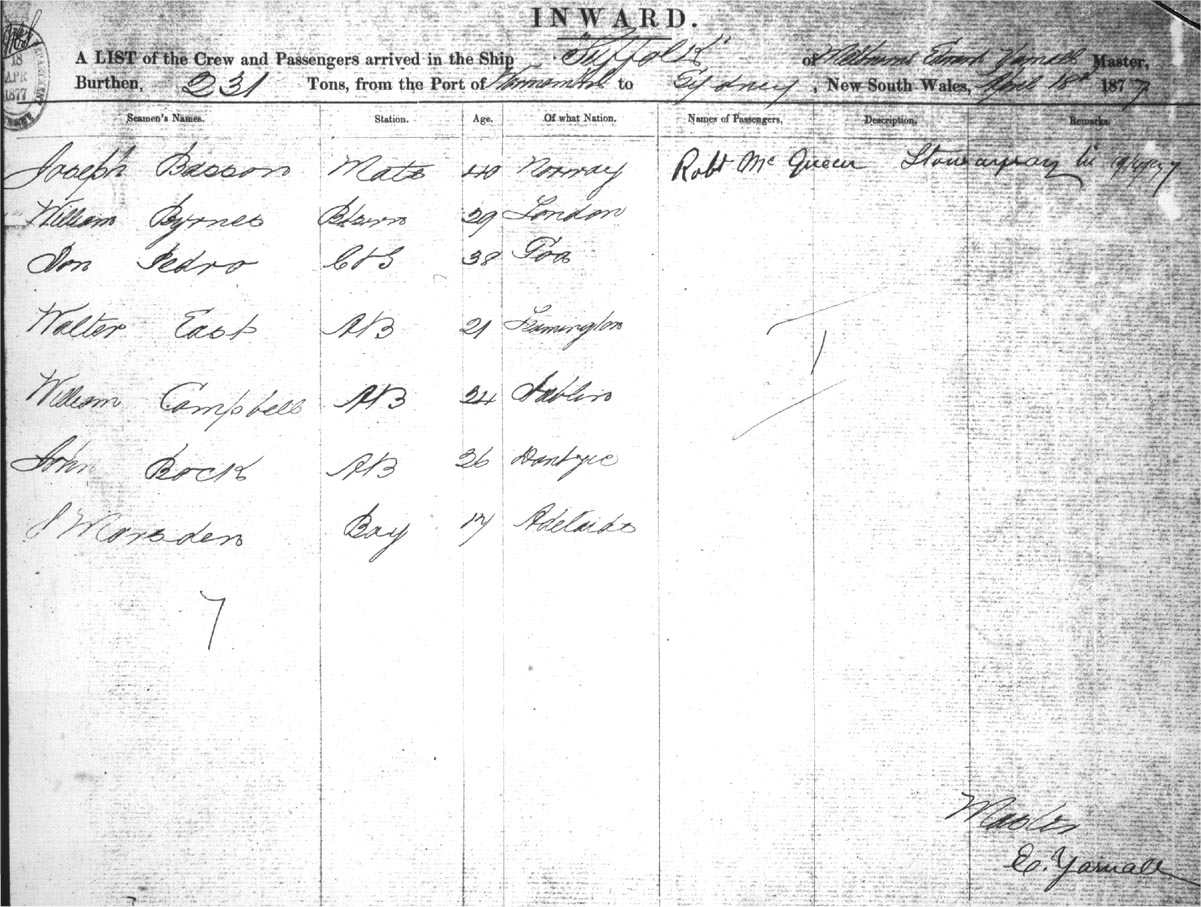 INWARD.
A LIST of the Crew and Passengers arrived in the Ship "Suffolk" of Melbourne Edward Yarnall Master,
Burthen, 231 Tons, from the Port of to Sydney, New South Wales, April 18th 1877
18
APR
1877
Seamen's Names. Station. Age. Of what Nation. Names of Passengers. Description. Remarks.
Joseph Basson Mate 40 Norway Robt McQueen Stowaway
William Byrnes 29 London
Don Pedro C&S 38 Goa
Walter East AB 21 Leamington
William Campbell AB 24 Dublin
John Bock AB 26 Dantzic
J Marsden Boy 17 Adelaide
7
1
Master
Ed. Yarnall